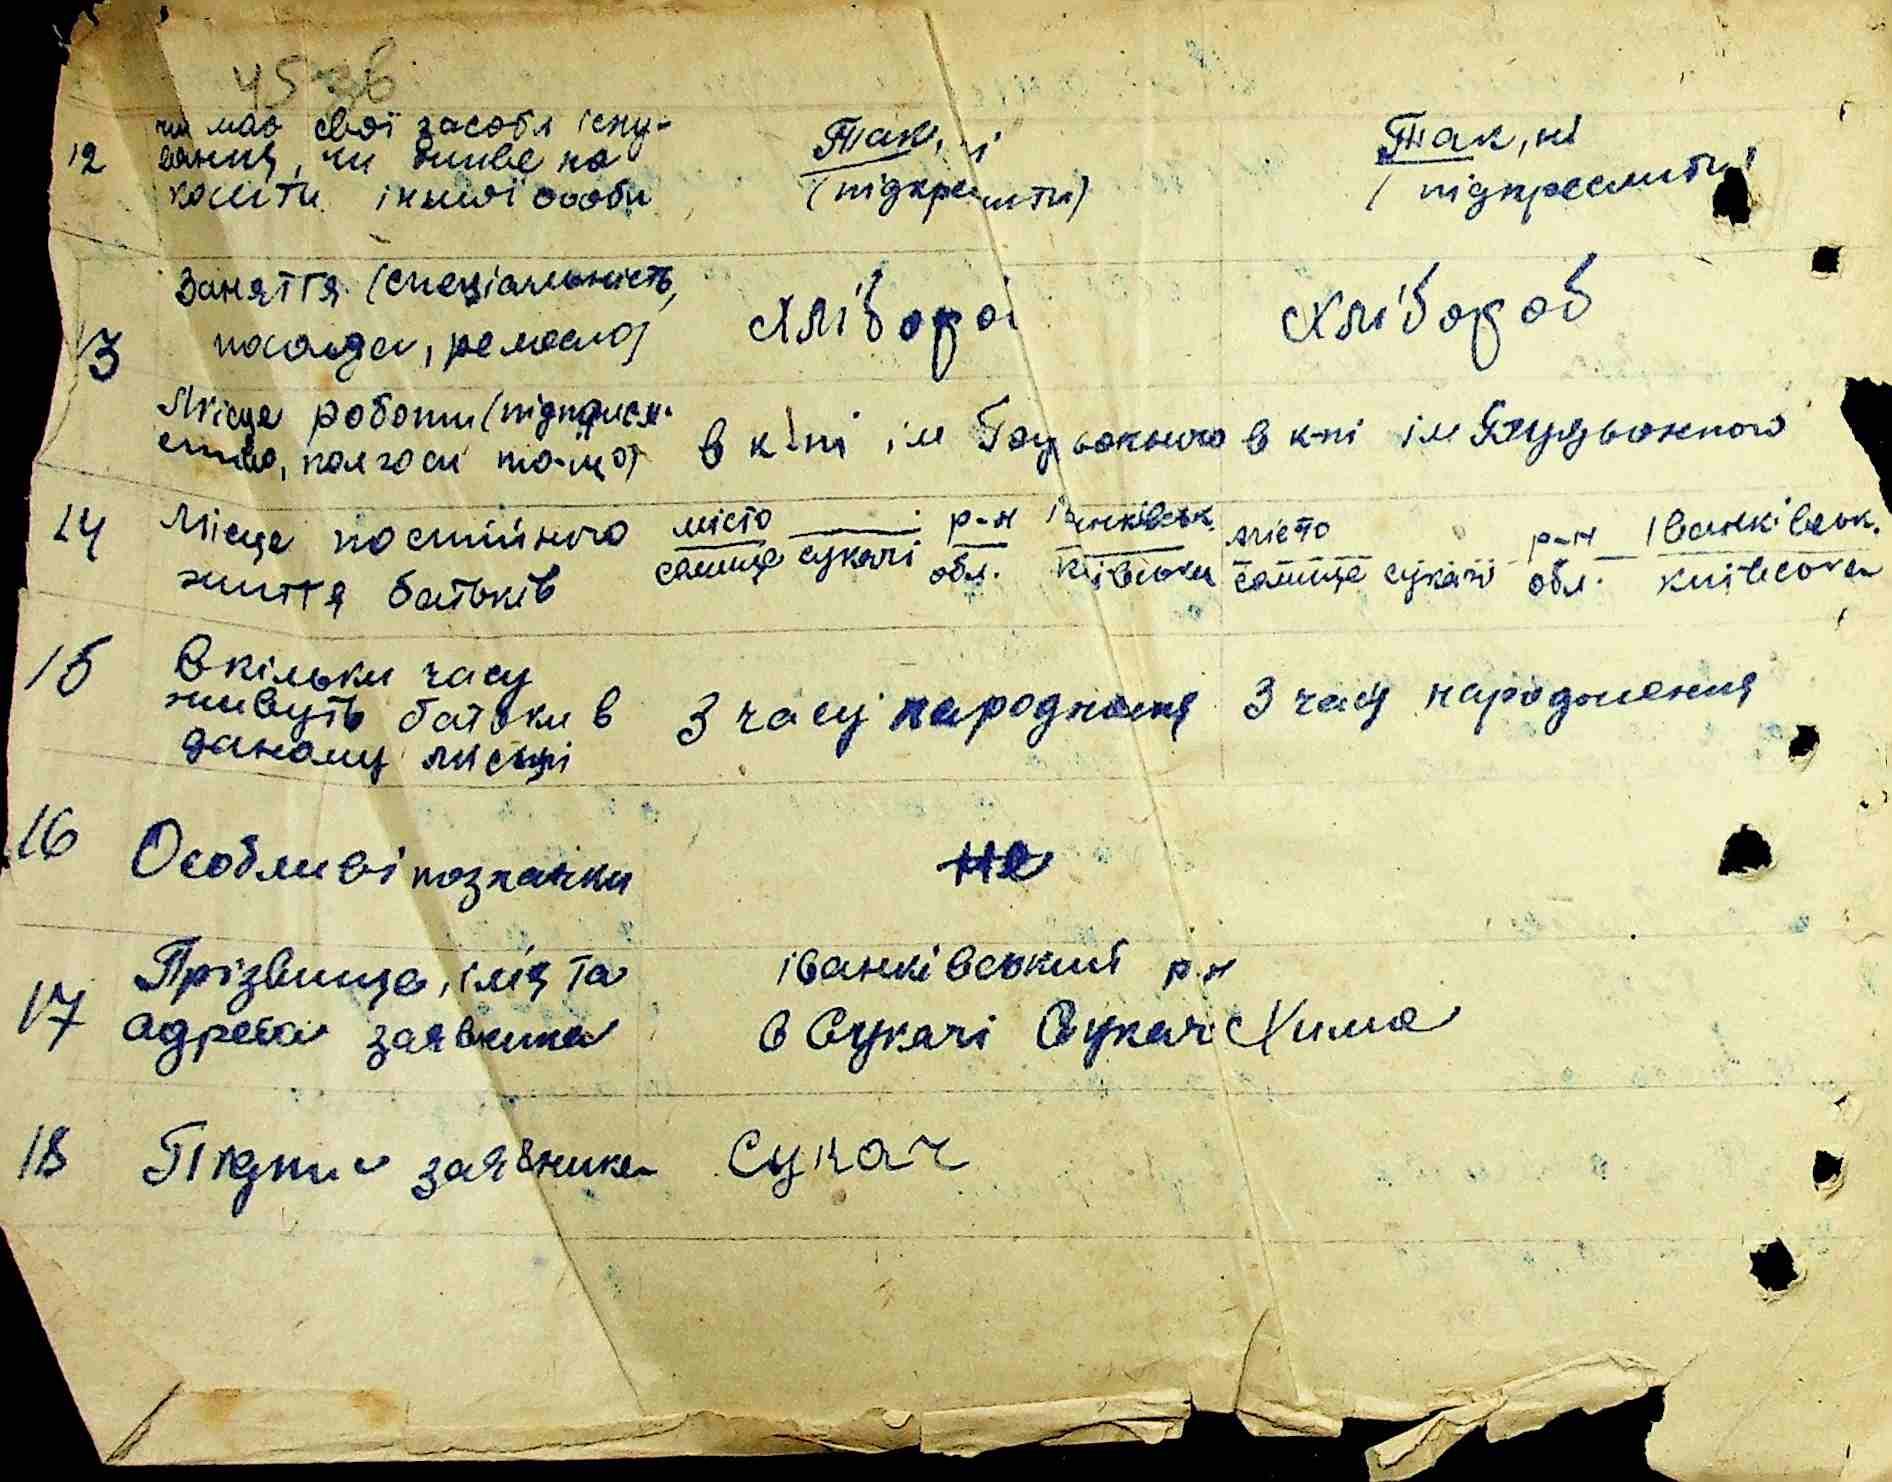 45 зв
12 чи має свої засоби існу-
вання, чи живе на
кошти іншої особи
Так, ні
(підкреслити)
Так, ні
(підкреслити)
13 Заняття (спеціальність,
посада, ремесло)
Хлібороб
Хлібороб
Місце роботи (підприєм-
ство, колгосп то-що)
в к-пі ім Будьонного
в к-пі ім Будьонного
14 Місце постійного
життя батьків
місто р-н Іванківськ.
селище сукачі обл. київська
місто р-н Іванківськ.
селище сукачі обл. київська
15 Скільки часу
живуть батьки в
даному місці
З часу народження
З часу народження
16 Особливі позначки
не
17 Прізвище, імя та
адреса заявника
іванківський р-н
с Сукачі Сукач Хима
18 Підпис заявника
Сукач